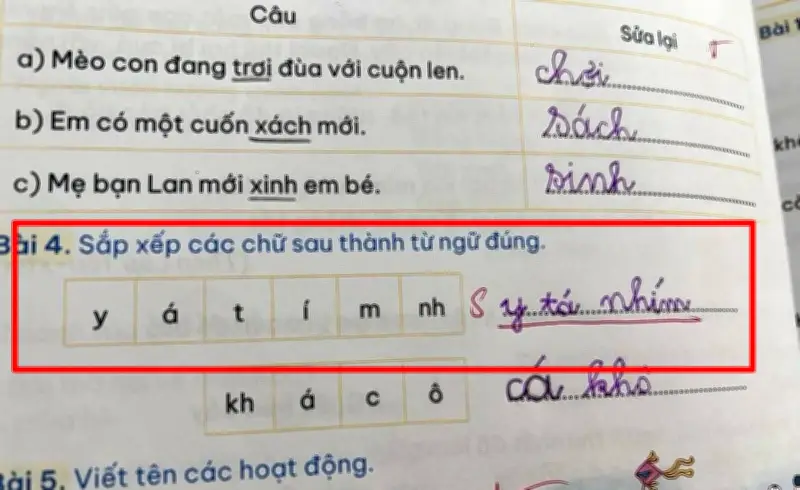 Câu Sửa lại
Bài 1
a) Mèo con đang trơi đùa với cuộn len. chơi
b) Em có một cuốn xách mới. sách
kh
c) Mẹ bạn Lan mới xinh em bé. sinh
có
Bài 4. Sắp xếp các chữ sau thành từ ngữ đúng.
y á t í m nh S y tá nhím
kh á c ô cá khô
Bài 5. Viết tên các hoạt động.